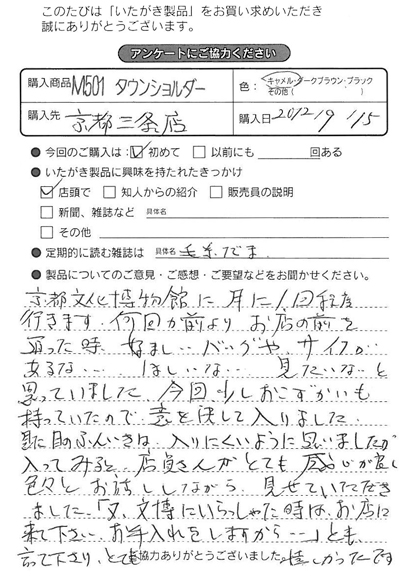 このたびは「いたがき製品」をお買い求めいただき
誠にありがとうございます。
アンケートにご協力ください
購入商品 M501 タウンショルダー 色： キャメル・ダークブラウン・ブラック
その他（ ）
購入先 京都三条店 購入日 2012/9/15
● 今回のご購入は：☑ 初めて □ 以前にも 回ある
● いたがき製品に興味を持たれたきっかけ
☑ 店頭で □ 知人からの紹介 □ 販売員の説明
□ 新聞、雑誌など 具体名
□ その他
● 定期的に読む雑誌は 具体名 毛糸だま
● 製品についてのご意見・ご感想・ご要望などをお聞かせください。
京都文化博物館に月に1回程度
行きます。何回か前より お店の前を
通った時、好ましいバッグや、サイフが
あるな…… ほしいな… 見たいな…と
思っていました。今回少しおこずかいも
持っていたので 意を決して入りました。
見た目のふんいきは 入りにくいように思いましたが
入ってみると 店員さんがとても 感じが良し
色々とお話ししながら 見せていただき
ました。「又、文博にいらっしゃた時は、お店に
来て下さい。お手入れをしますから…」とも
言って下さり、とても 嬉しかったです
ご協力ありがとうございました。